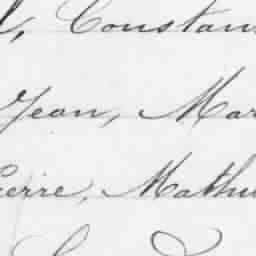 l, Constan
Jean, Mar
ierre, Mathu